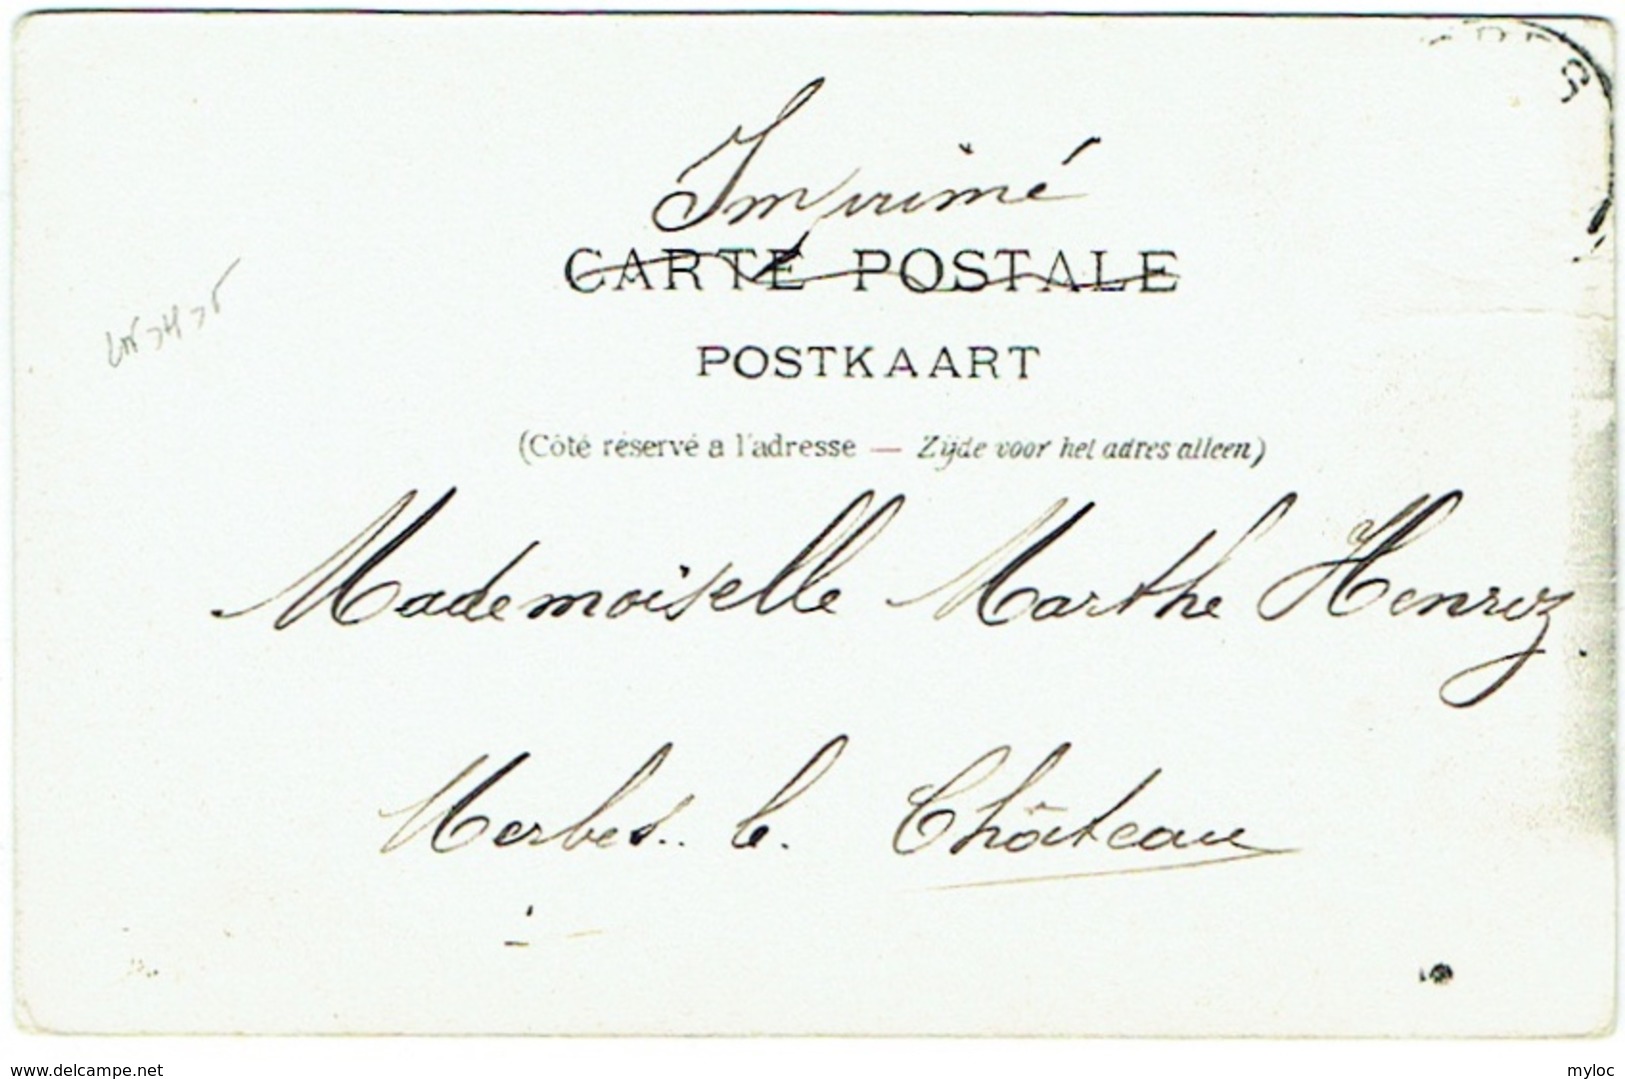 Imprimé
CARTE POSTALE
POSTKAART
(Côté réservé a l'adresse — Zijde voor het adres alleen)
Mademoiselle Marthe Henrez
Merbes.. le. Château
www.delcampe.net
myloc